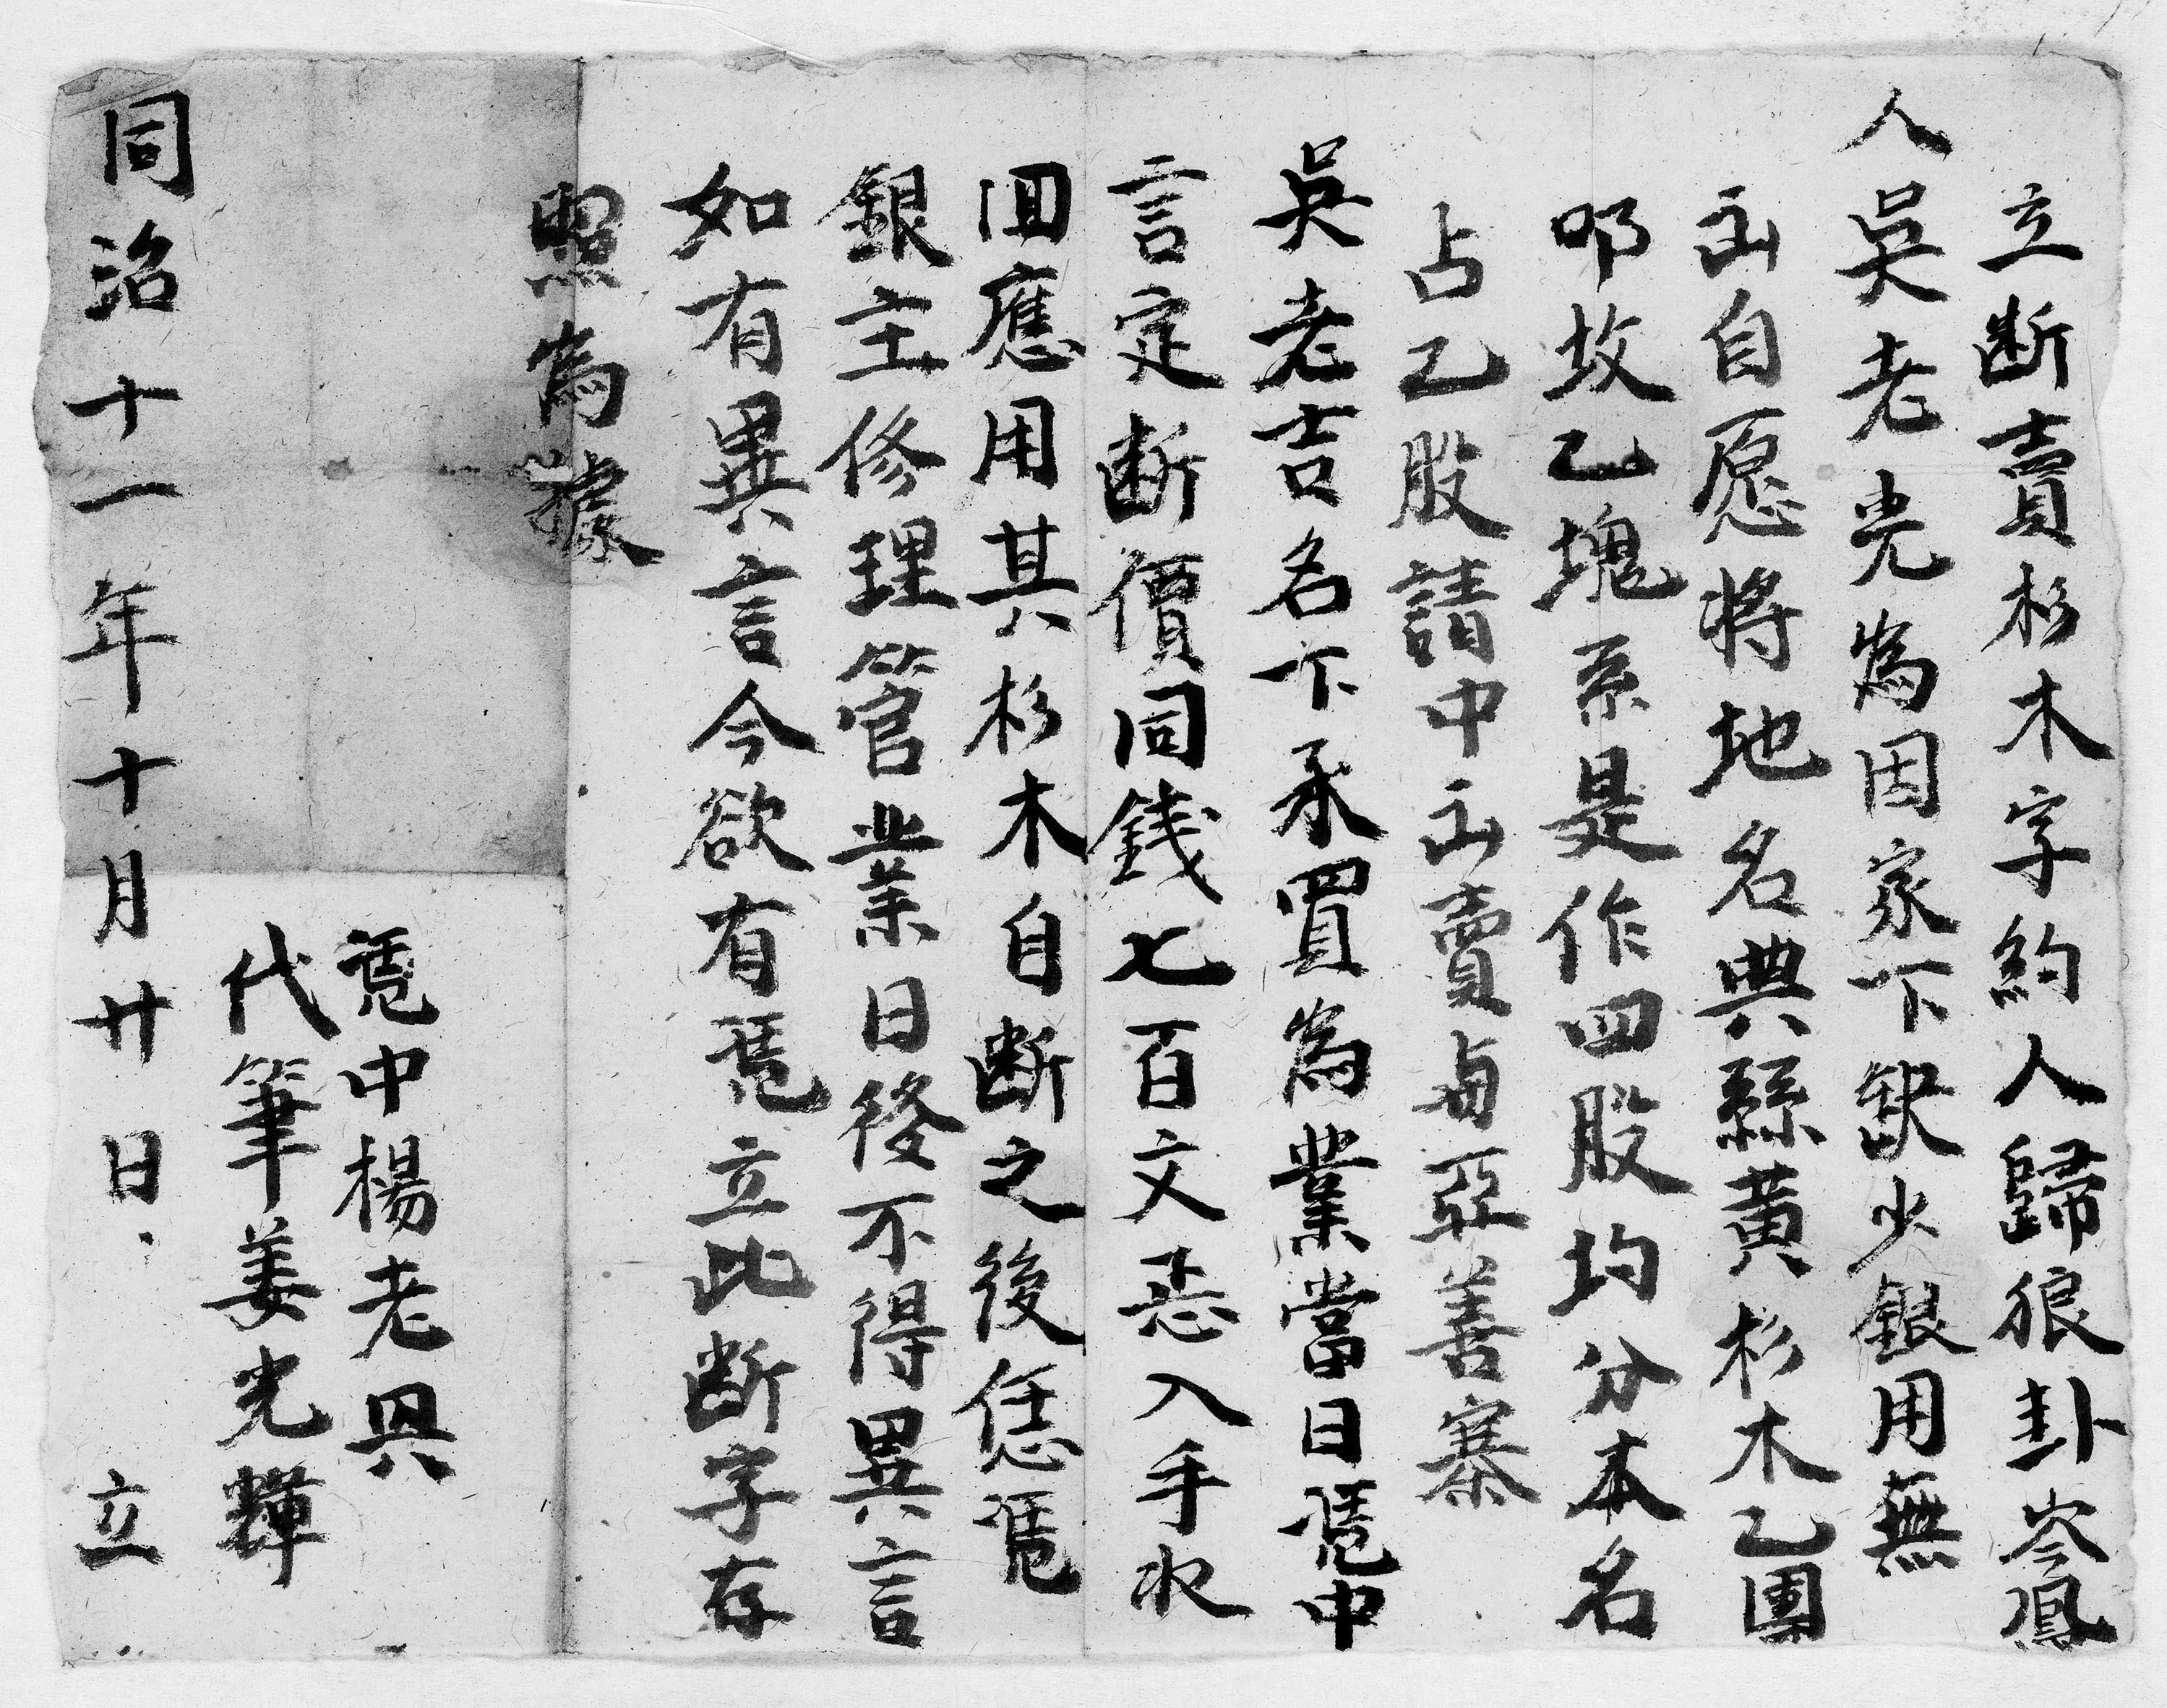 立断賣杉木字約人歸狼卦岑鳳
人吳老光為因家下缺少銀用無
出自愿將地名典縣黃杉木乙團
吅坟乙塊系是作四股均分本名
占乙股請中出賣與亞善寨
吳老吉名下承買為業當日凴中
言定断價同錢七百文悉入手收
回應用其杉木自断之後恁凴
銀主修理管業日後不得異言
如有異言今欲有凴立此断字存
照為據
凴中楊老興
代筆姜光輝
同治十一年十月廿日立